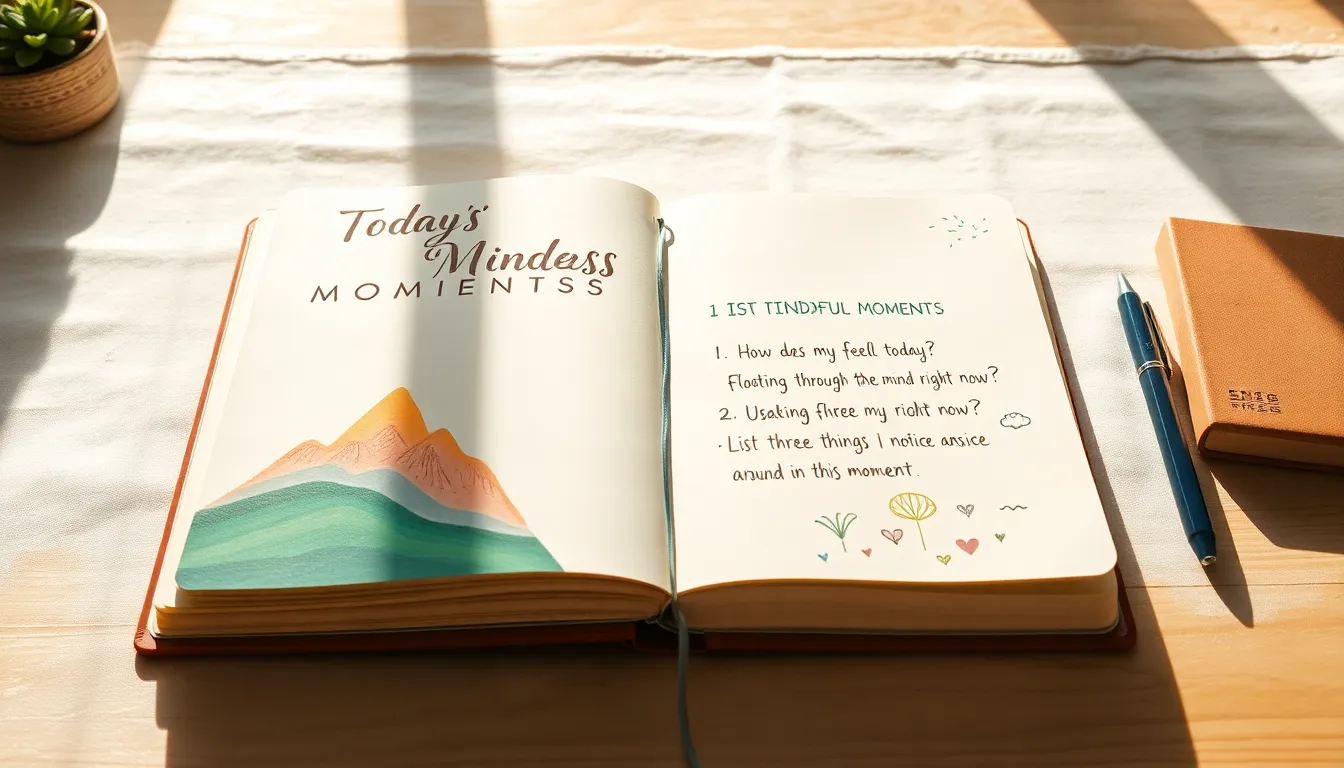 Today's'
Mindess
MOMIENTSS
1 IST TINDFUL MOMENTS
1. How das my feell today?
Floeting through the mind right now?
2. Usaking fhree my riolt now?
- List three things I notice ansice
anund in this moment.